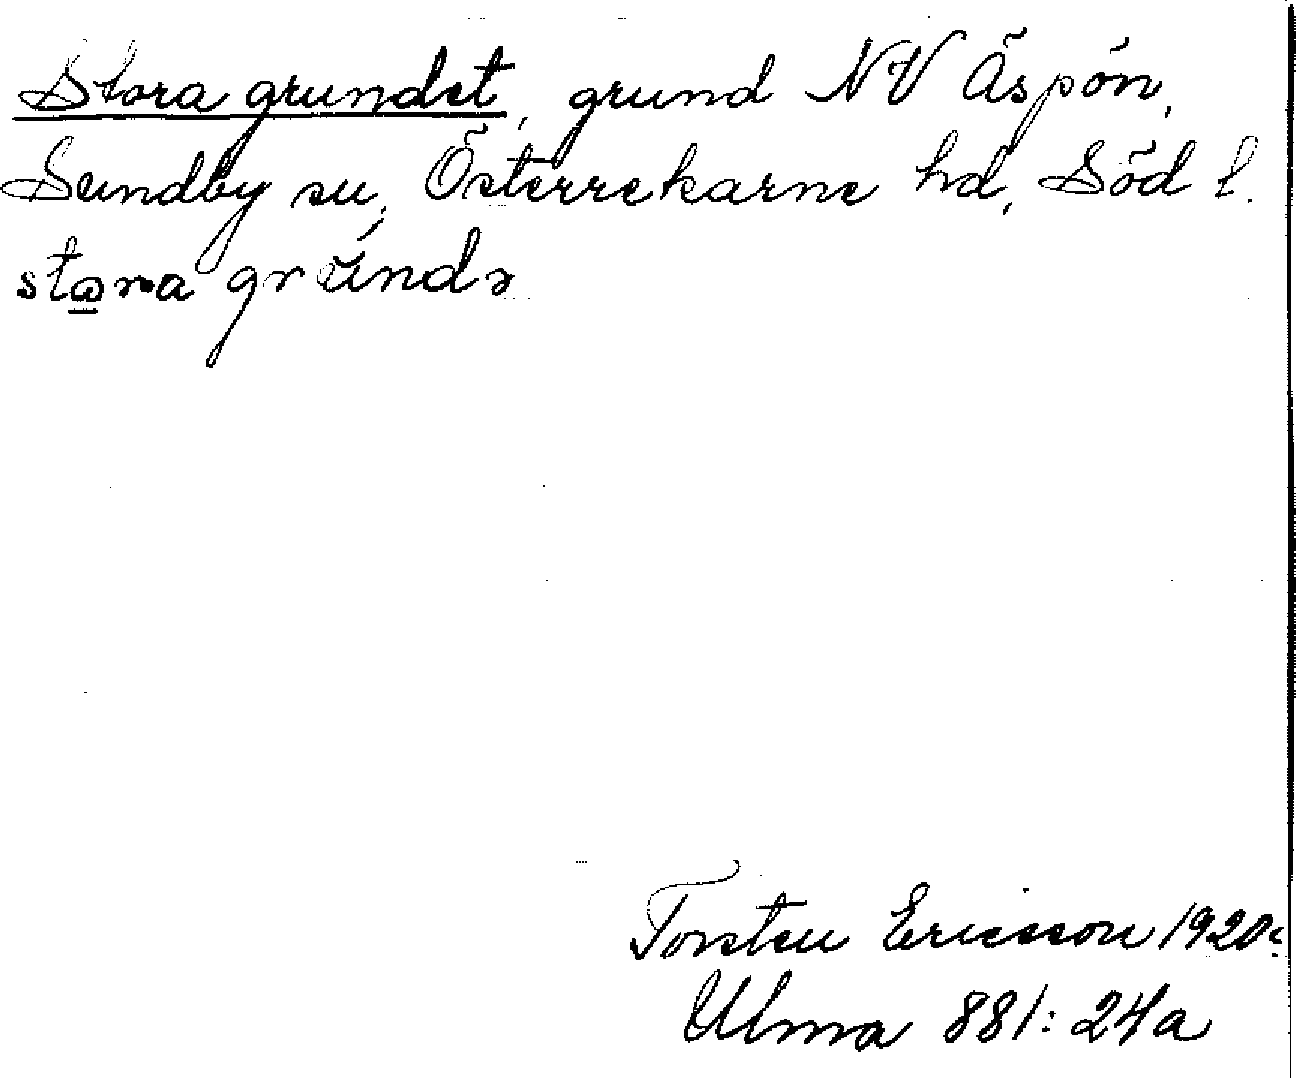 Stora grundet, grund NV Äspön,
Sundby sn, Österrekarne hd, Söd l.
stora grúndə
Torsten Ericsson 1920
Ulma 881:24a